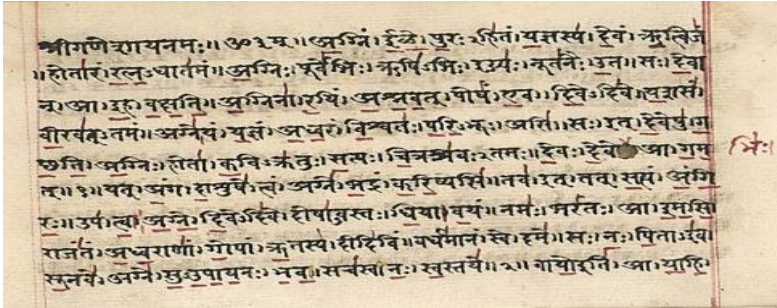 श्रीगणेशायनमः॥ ॐ३म्॥ अग्निं। ईळे। पुरःऽहितं। यज्ञस्य। देवं। ऋत्विजं
॥होतारं। रत्नऽधातमं॥ अग्निः। पूर्वेभिः। ऋषिऽभिः। ईड्यः। नूतनैः। उत॥ सः। देवा
न्। आ। इह। वक्षति॥ अग्निना। रयिं। अश्नवत्। पोषं। एव। दिवेऽदिवे॥ यशसं
वीरवत्ऽतमं॥ अग्ने। यं। यज्ञं। अध्वरं। विश्वतः। परिऽभूः। असि॥ सः। इत्। देवेषु। ग
च्छति। अग्निः। होता। कविऽक्रतुः। सत्यः। चित्रश्रवःऽतमः॥ देवः। देवे आ। गम
भिः।
त्॥१॥ यत्। अंग। दाशुषे। त्वं। अग्ने। भद्रं। करिष्यसि॥ तव। इत्। तत्। सत्यं। अंगि
रः॥ उप। त्वा। अग्ने। दिवेऽदिवे। दोषाऽवस्तः। धिया। वयं॥ नमः। भरंतः। आ। इमसि॥
राजंतं। अध्वराणां। गोपां। ऋतस्य। दीदिविं॥ वर्धमानं। स्वे। दमे॥ सः। नः। पिताऽइव
सूनवे। अग्ने। सुऽउपायनः। भव॥ सचस्व। नः। स्वस्तये॥२॥ वायोइति। आ। याहि।